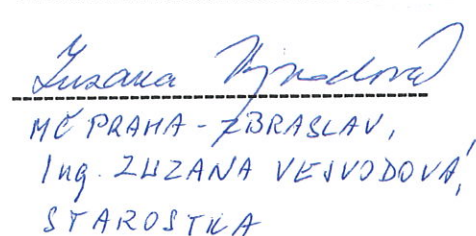 Zuzana Vejvodová
MČ PRAHA - ZBRASLAV,
Ing. ZUZANA VEJVODOVÁ,
STAROSTKA